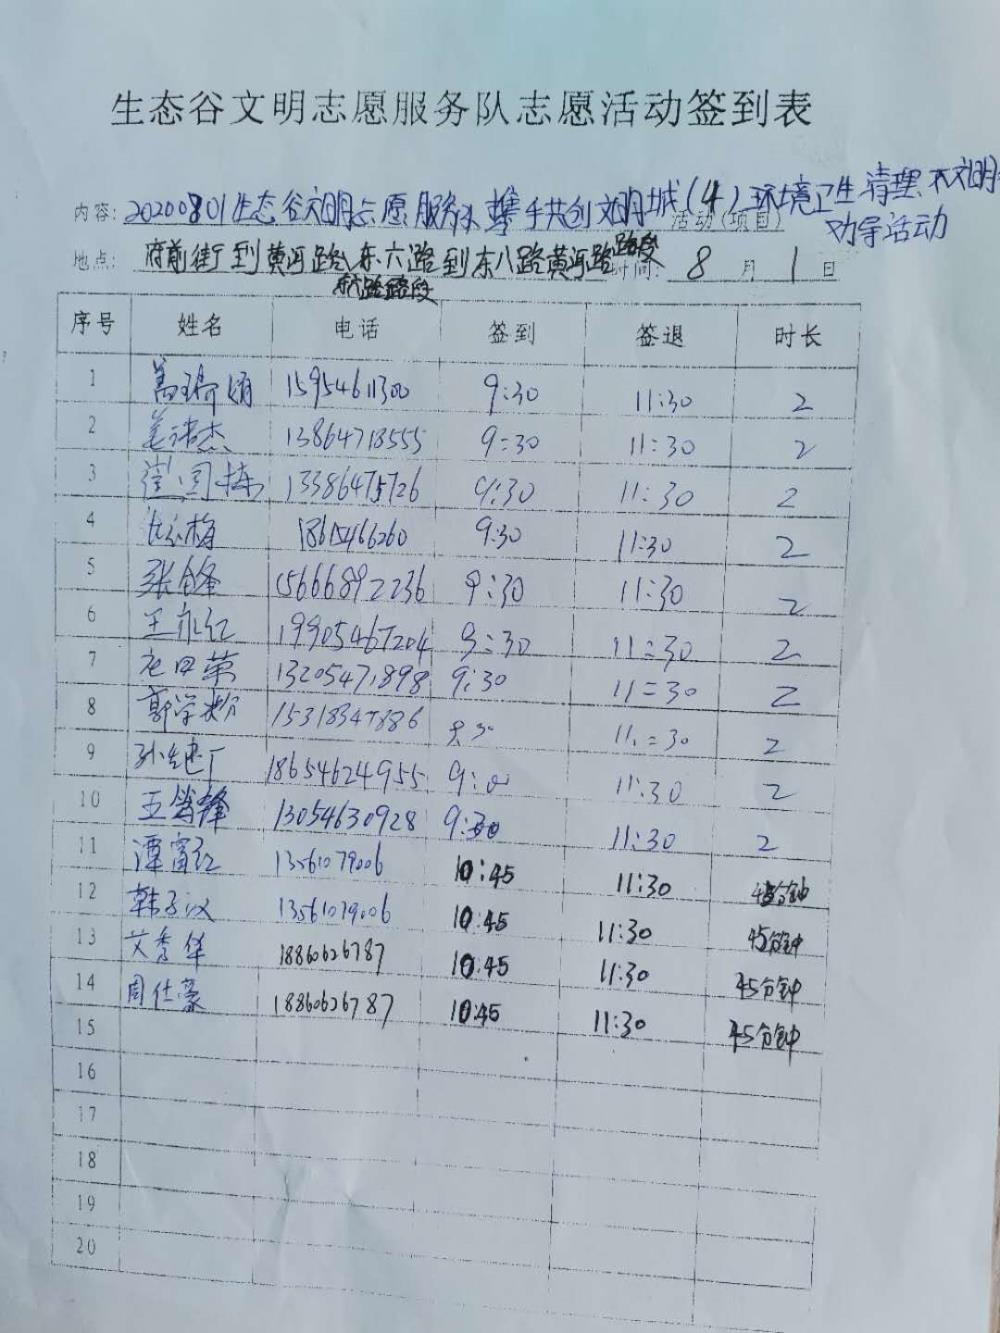 生态谷文明志愿服务队志愿活动签到表
内容: 20200801生态谷文明志愿服务队携手共创文明城(4)环境卫生清理、不文明
活动(项目) 劝导活动
地点: 府前街到黄河路、东六路到东八路黄河路路段 时间: 8 月 1 日
路段
序号 姓名 电话 签到 签退 时长
1 15954611300 9:30 11:30 2
2 13864718555 9:30 11:30 2
3 13386475726 9:30 11:30 2
4 18615466260 9:30 11:30 2
5 15666892236 9:30 11:30 2
6 王永红 19905467204 9:30 11:30 2
7 13205471898 9:30 11=30 2
8 郭学粉 15318347886 11:30 2
9 孙建广 18654624955 11:30 2
10 13054630928 9:30 11:30 2
11 谭富红 13561079006 10:45 11:30 45分钟
12 韩子汉 13561079006 10:45 11:30 45分钟
13 艾秀华 18860626787 10:45 11:30 45分钟
14 周仕豪 18860626787 10:45 11:30 45分钟
15
16
17
18
19
20